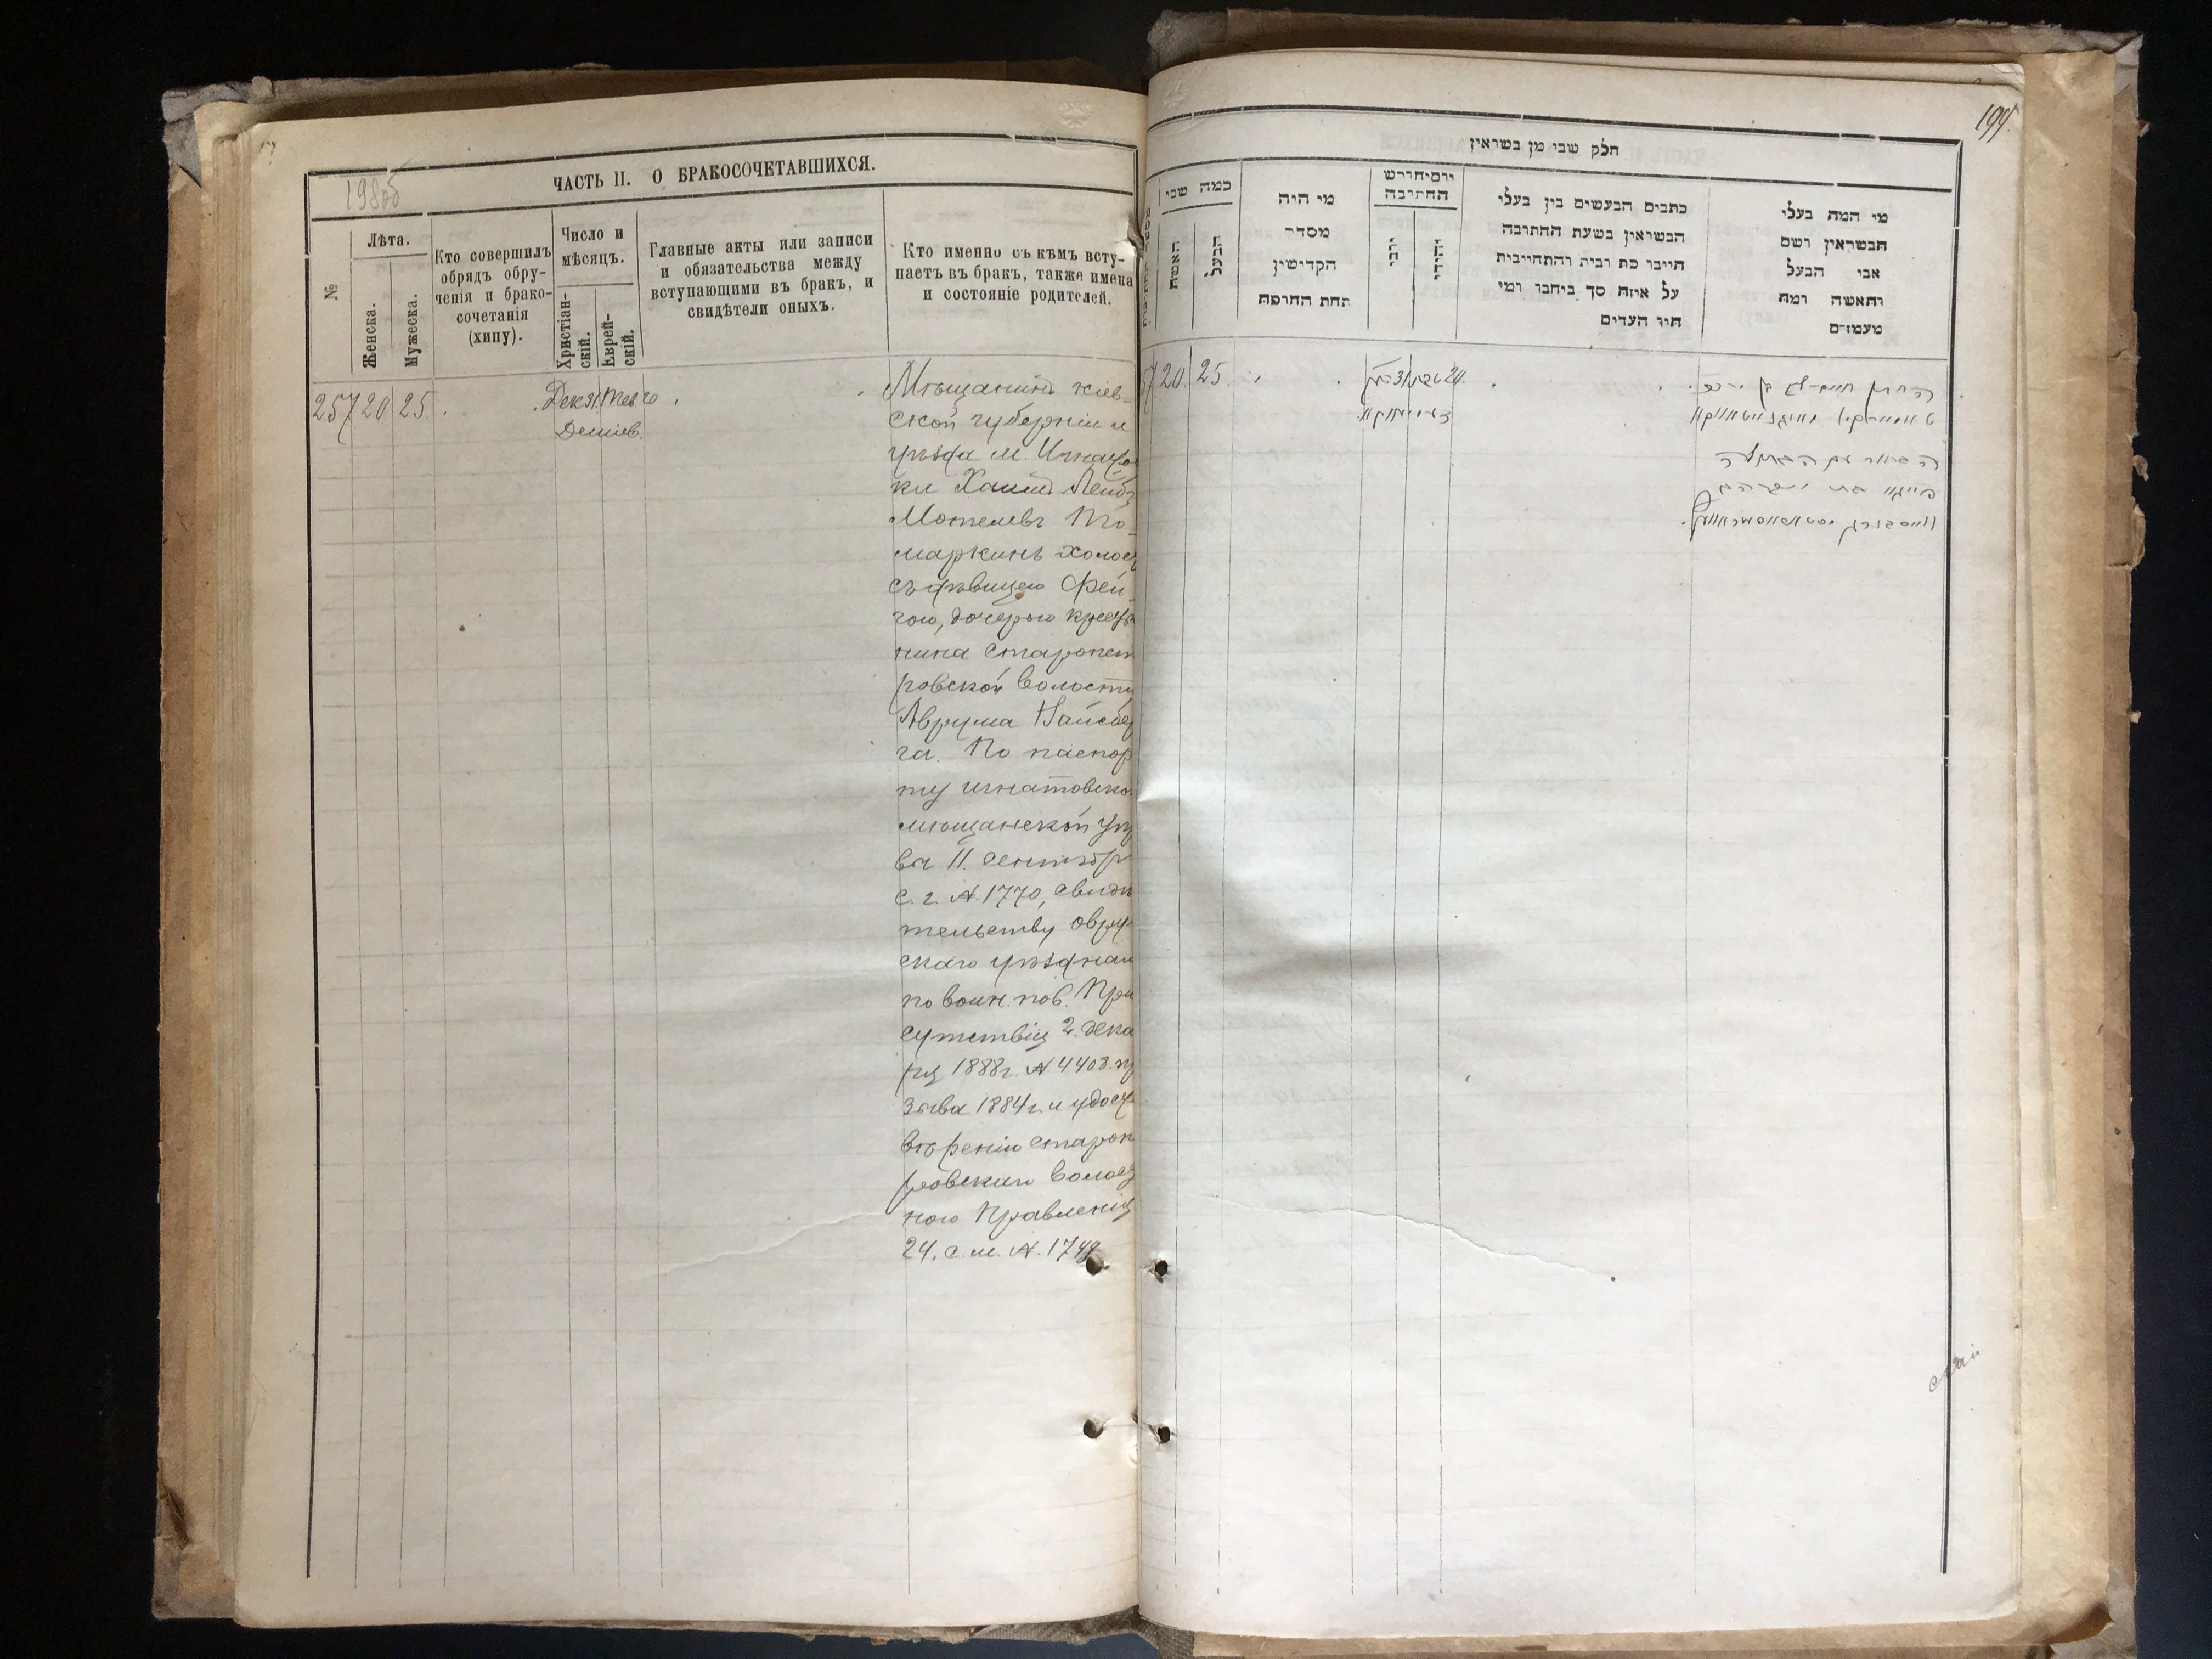 198об
ЧАСТЬ II. О БРАКОСОЧЕТАВШИХСЯ.
№
Лѣта.
Женска.
Мужеска.
Кто совершилъ
обрядъ обру-
ченія и брако-
сочетанія
(хипу).
Число и
мѣсяцъ.
Христіан-
скій.
Еврей-
скій.
Главные акты или записи
и обязательства между
вступающими въ бракъ, и
свидѣтели оныхъ.
Кто именно съ кѣмъ всту-
паетъ въ бракъ, также имена
и состояніе родителей.
257 20 25. Дек 31 Тев 20
Демiев.
Мѣщанинъ Кіев-
ской губерніи и
уѣзда м. Игнатов
ки Хаимъ Лейбъ
Мотелевъ То-
маркинъ холост
съ дѣвицею Фей-
гою, дочерью крестья
нина Старопет
ровской волости
Аврума Вайсбер
га. По паспор
ту игнатовско
мѣщанской упр
вы 11. сентябр
с. г. № 1770, свидѣ
тельству Овру
скаго уѣзднаго
по воин. пов. При
сутствія 2. дека
ря 1888г. № 4408. пр
зыва 1884г. и удост
вѣренію старопе
ровскаго волост
ного Правленія
24. с. м. № 1749
199.
חלק שני מן בשראין
כמה שני
האשה
הבעל
מי היה
מסדר
הקדישין
תחת החופה
יוםיחודש
החתובה
כתבים הנעשים בין בעלי
הנשראין בשעת החתובה
חייבו כת רביה והתחייבית
על איזה סך ביחבו ומי
חיו העדים
מי המה בעלי
הבשראין ושם
אבי הבעל
והאשה ומה
מעמדם
57 20. 25.
31
20.